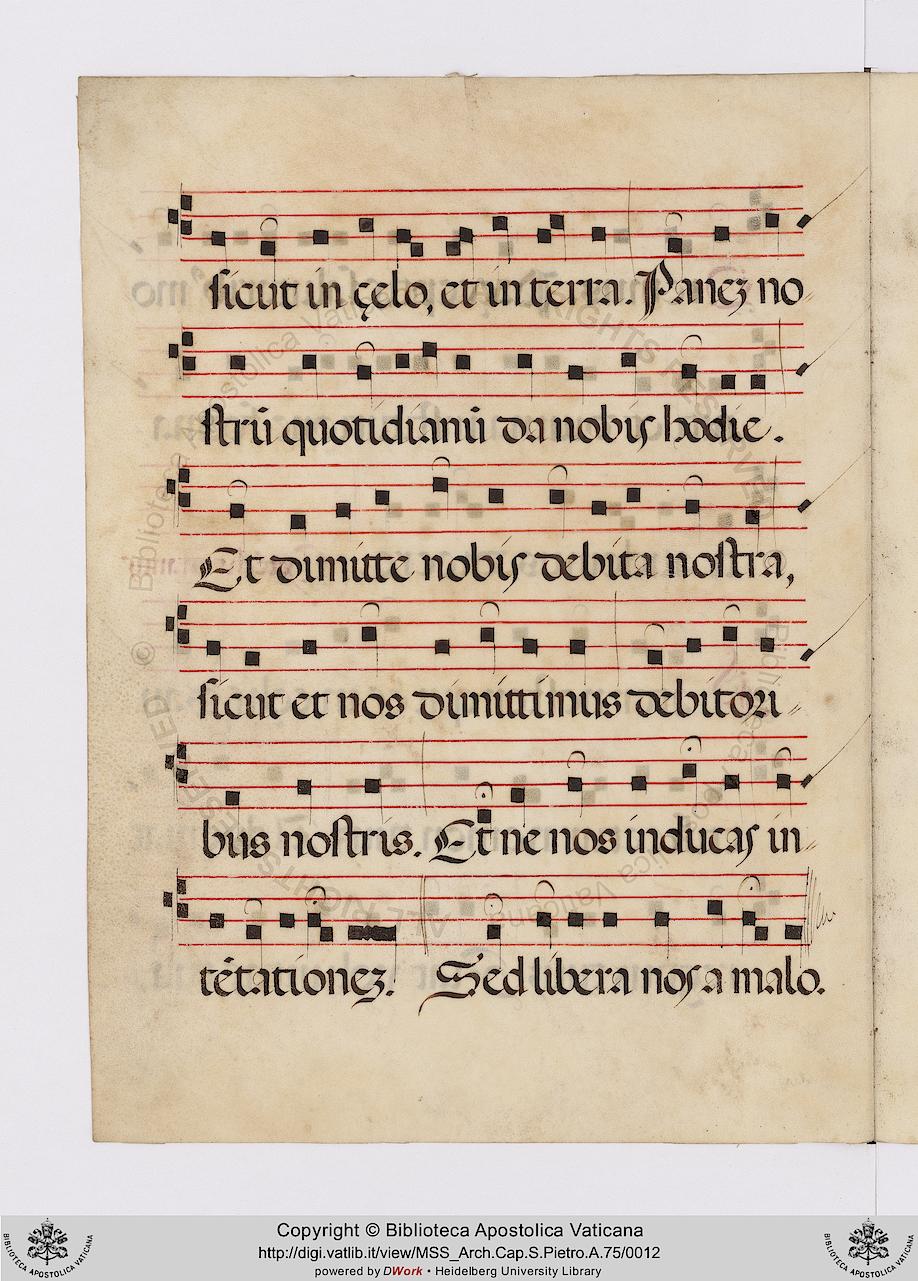 sicut in çelo, et in terra. Panez no
strū quotidianū da nobis hodie.
Et dimitte nobis debita nostra,
sicut et nos dimittimus debitori
bus nostris. Et ne nos inducas in
tētationez. Sed libera nos a malo.
Copyright © Biblioteca Apostolica Vaticana
http://digi.vatlib.it/view/MSS_Arch.Cap.S.Pietro.A.75/0012
powered by DWork • Heidelberg University Library